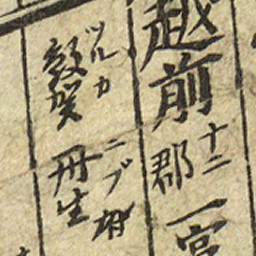 越前 十二郡 一宮
ツルカ ニブ 府
敦賀 丹生